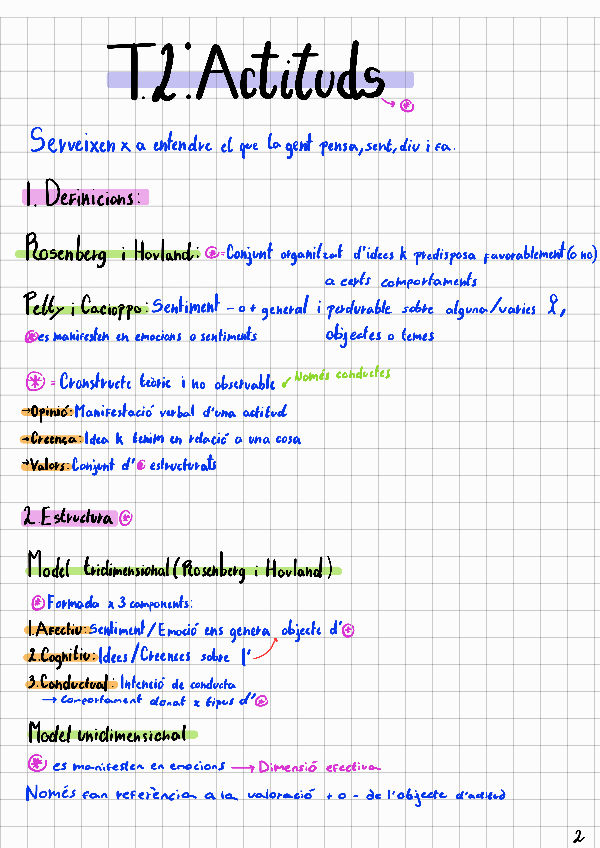 T.2: Actituds
→ *
Serveixen x a entendre el que la gent pensa, sent, diu i fa.
1. Definicions:
Rosenberg i Hovland: * = Conjunt organitzat d'idees k predisposa favorablement (o no)
a certs comportaments
Petty i Cacioppo: Sentiment - o + general i perdurable sobre alguna/varies
objectes o temes
* es manifesten en emocions o sentiments
* = Cronstructe teòric i no observable Només conductes
→ Opinió: Manifestació verbal d'una actitud
→ Creença: Idea k tenim en relació a una cosa
→ Valors: Conjunt d' estructurats
2. Estructura *
Model tridimensional (Rosenberg i Hovland)
* Formada x 3 components:
1. Afectiu: Sentiment/Emoció ens genera objecte d'*
2. Cognitiu: Idees/Creences sobre l'
3. Conductual: Intenció de conducta
→ comportament donat x tipus d'*
Model unidimensional
* es manifesten en emocions → Dimensió efectiva
Només fan referència a la valoració + o - de l'objecte d'actitud
2